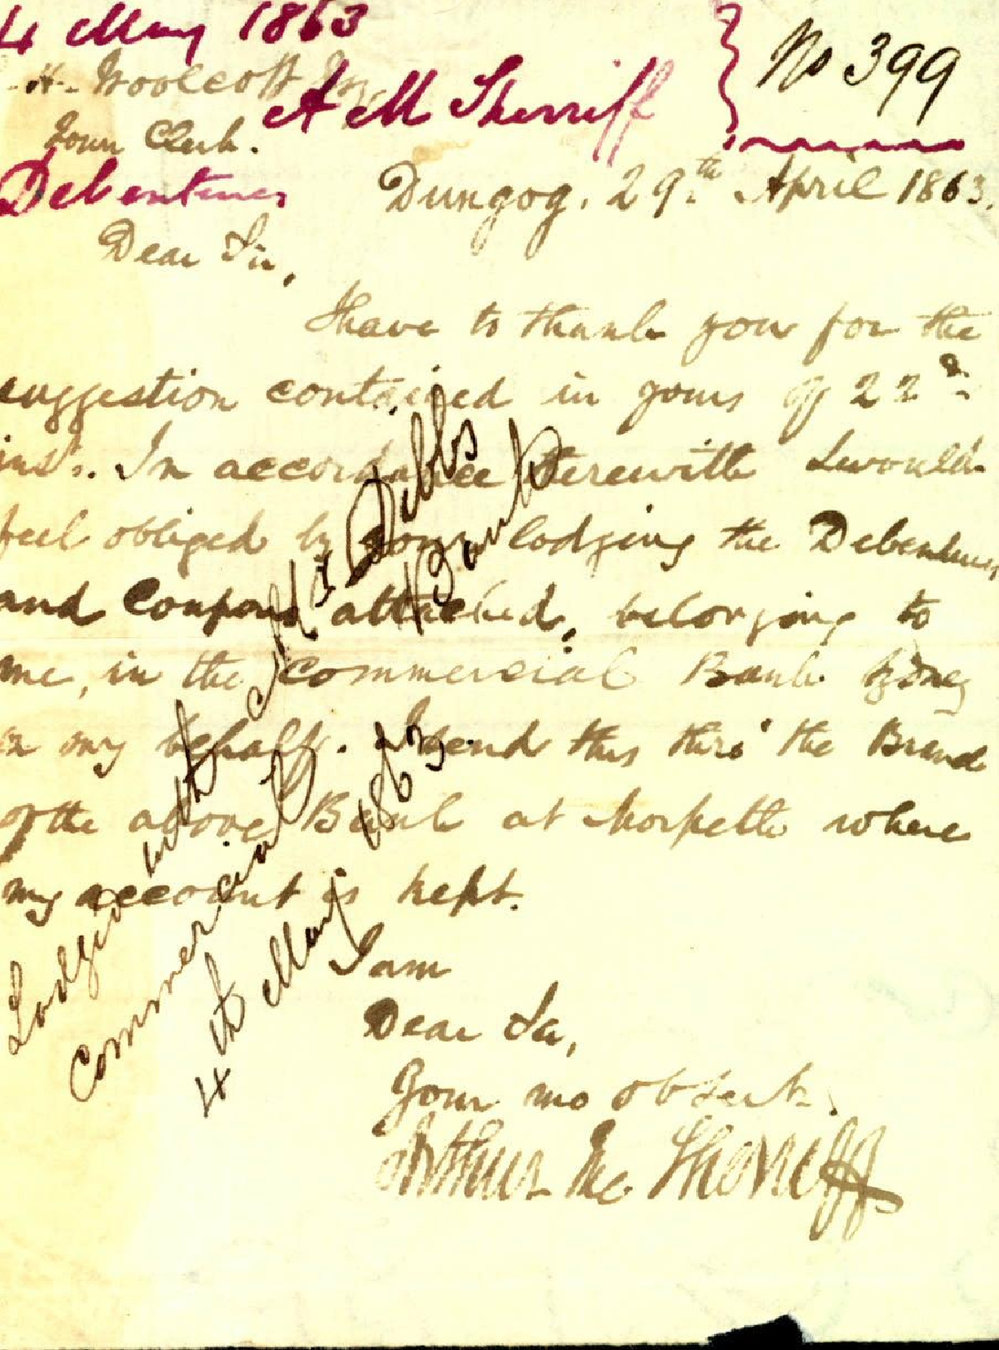 4 May 1863
A M Sherriff
No 399
H. Woolcott Esq
Town Clerk.
Debentures
Dungog. 29th April 1863.
Dear Sir,
I have to thank you for the
suggestion contained in yours of 22d
inst. In accordance therewith I would
feel obliged by your lodging the Debentures
and Coupons attached, belonging to
me, in the Commercial Bank Sydney
on my behalf. I send this thro' the Branch
of the above Bank at Morpeth where
my account is kept.
I am
Dear Sir,
Your mo obt Servt.
Arthur Mc Sherriff
Lodged with Mr Dibbs
Commercial Bank
4th May 1863